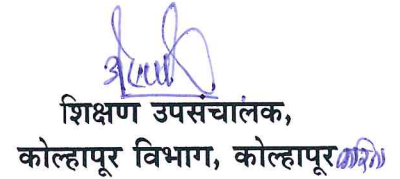 शिक्षण उपसंचालक,
कोल्हापूर विभाग, कोल्हापूर करिता